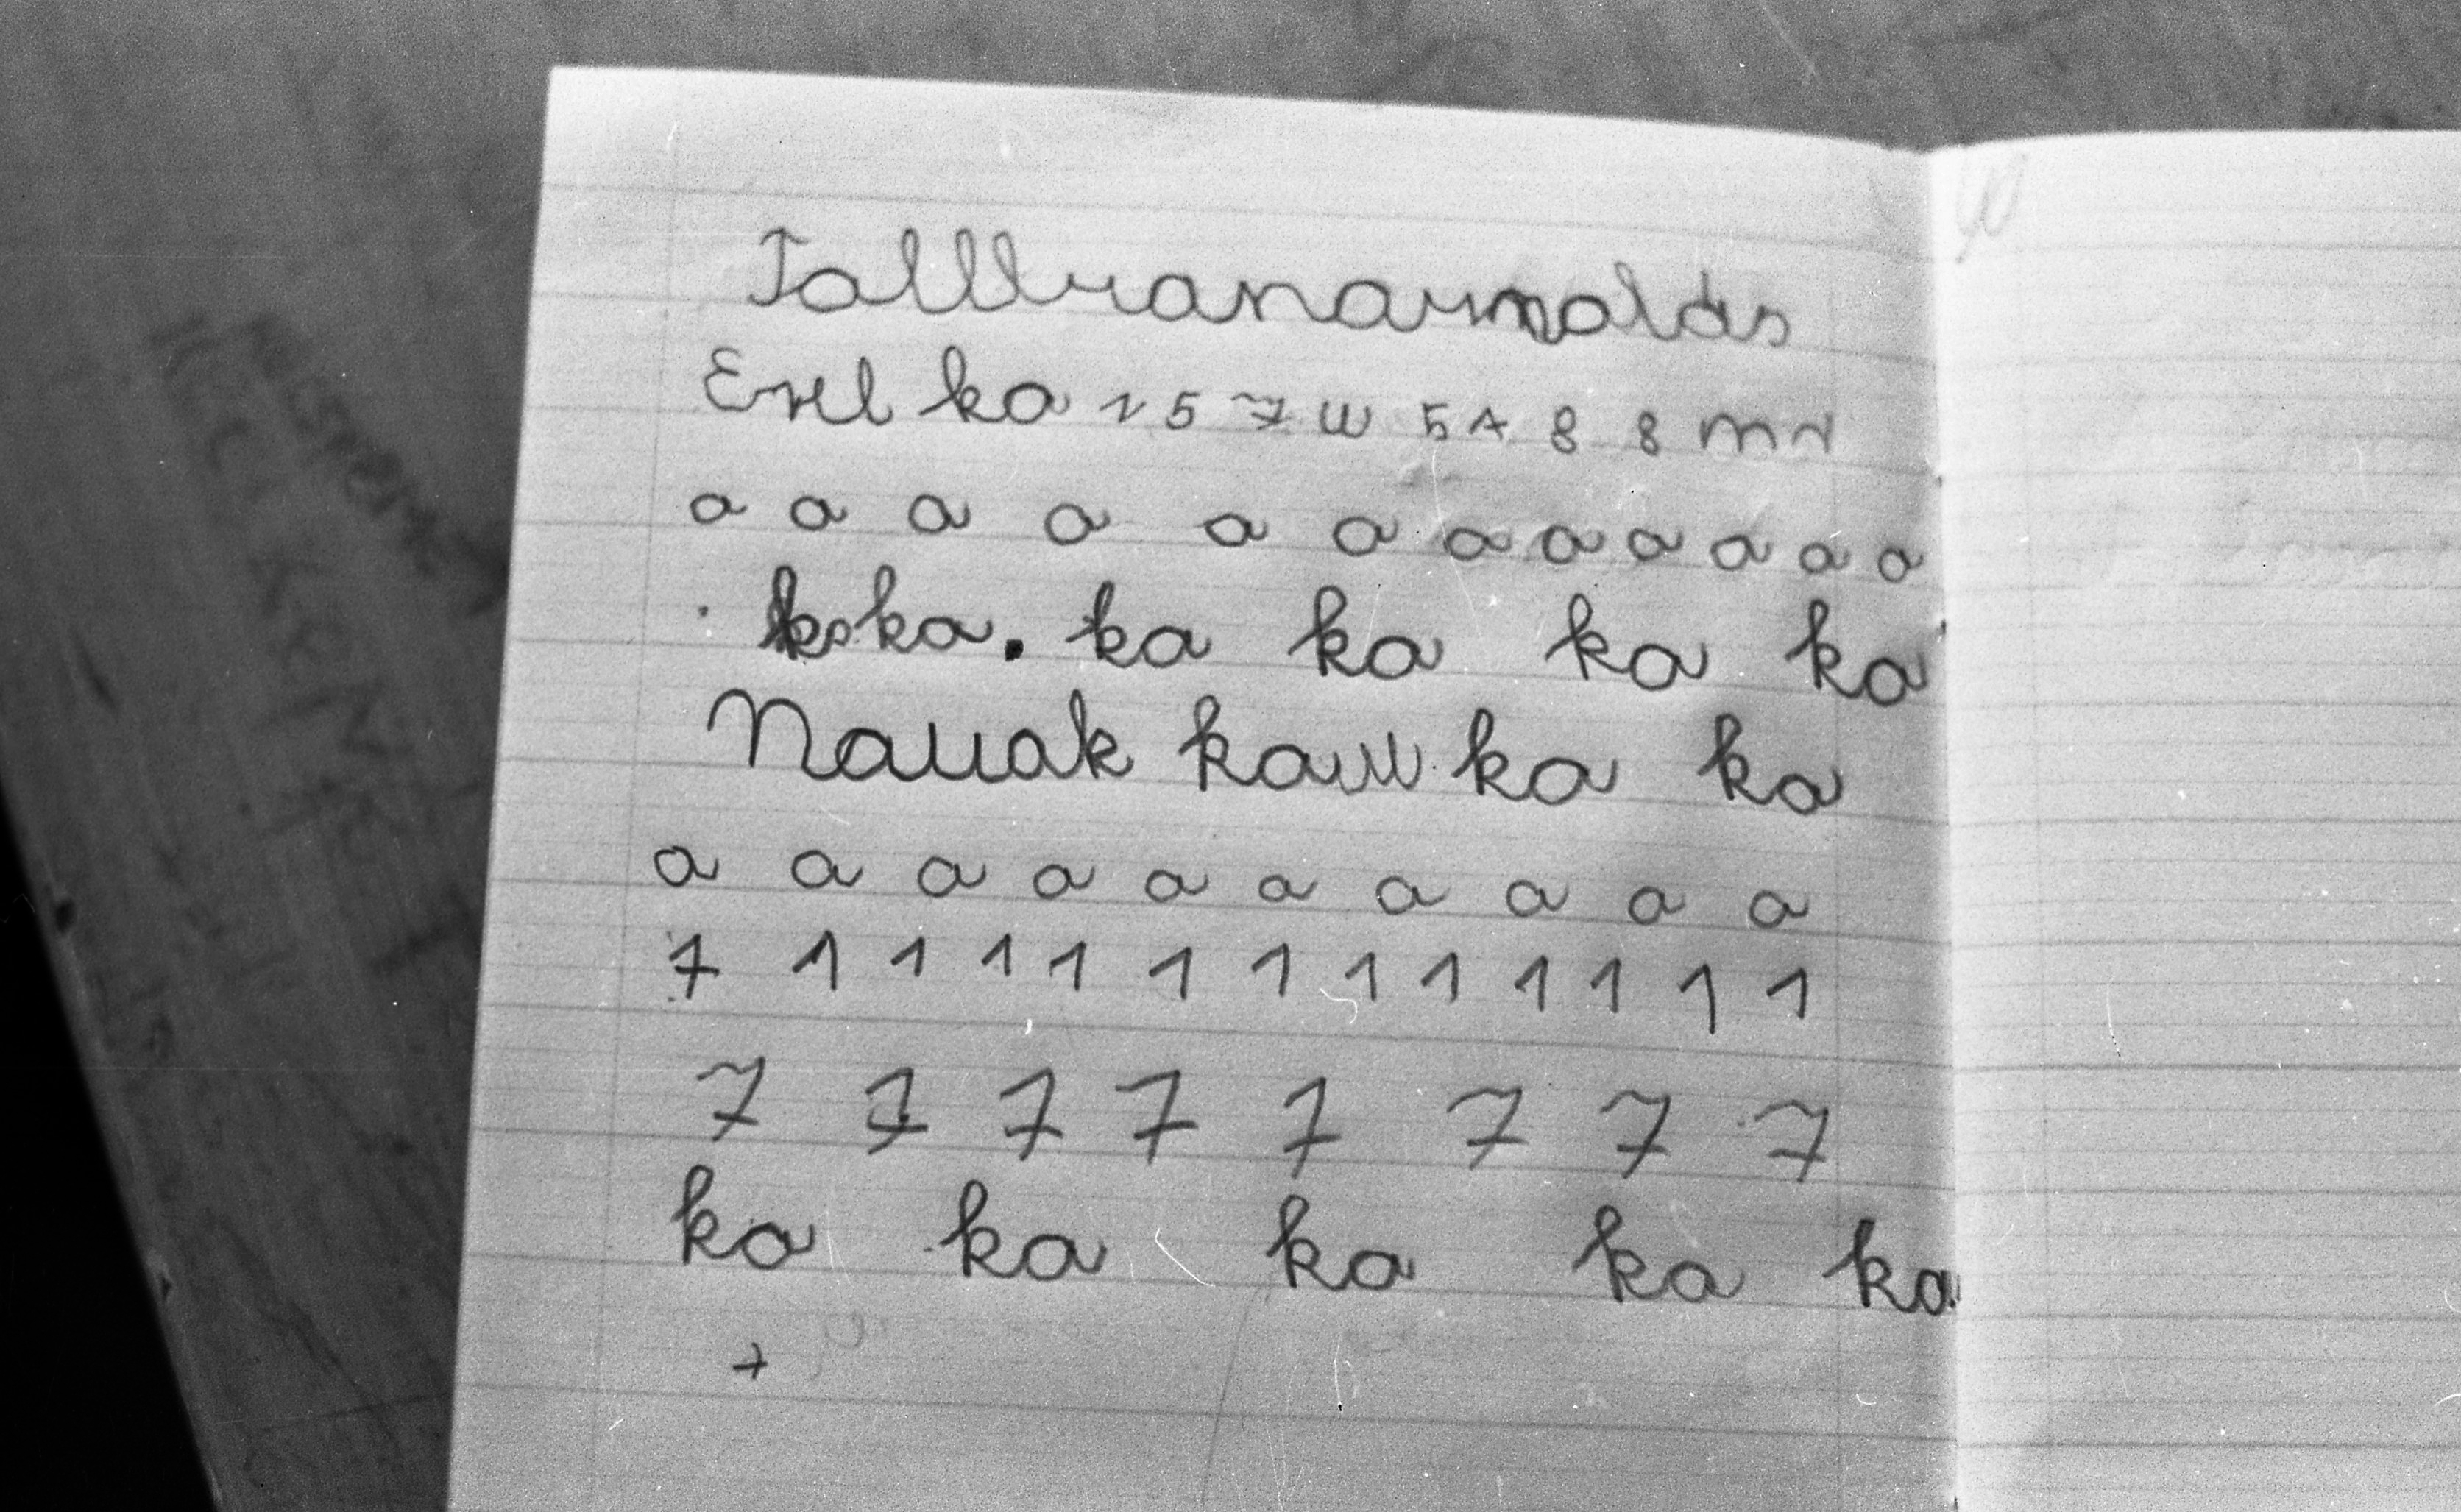 Tolllranarnolds
Enel ka 1 5 7 w 5 1 8 8 m r
a a a a a a a a a a a a
ka ka. ka ka ka ka
Nauak kauu ka ka
a a a a a a a a a a
7 1 1 1 1 1 1 1 1 1 1 1 1
7 7 7 7 7 7 7 7
ka ka ka ka ka
7